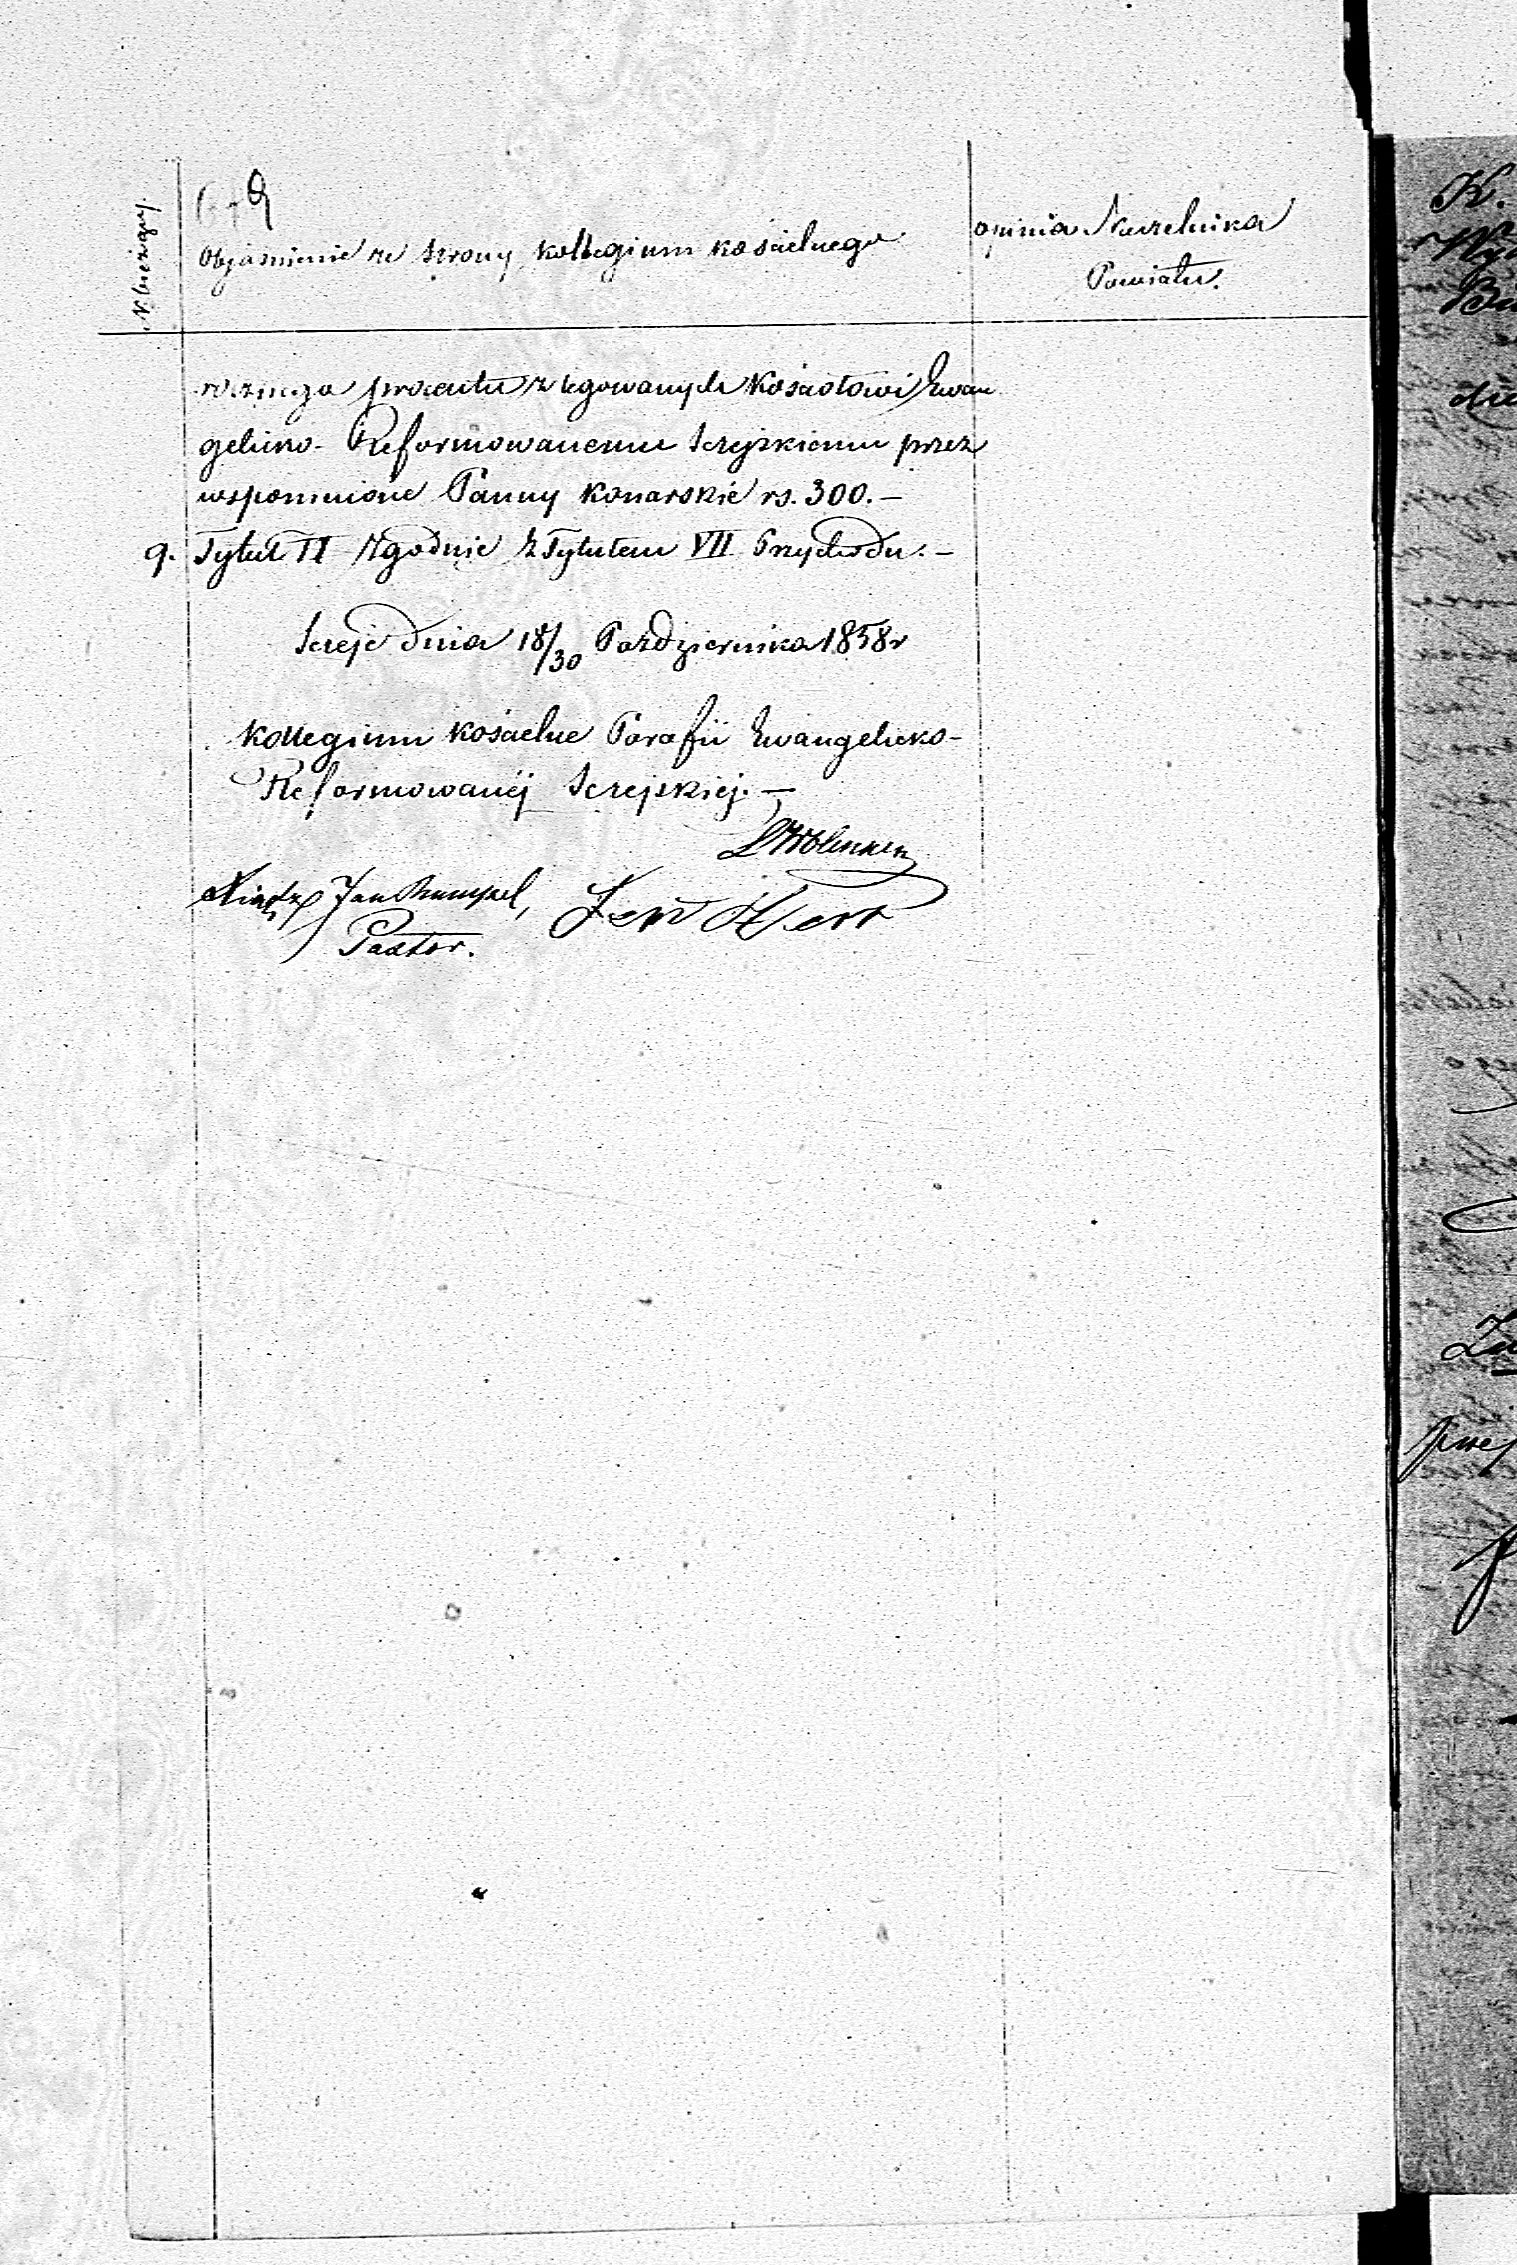 N. bieżący.
Objaśnienie ze strony kollegium kościelnego
opinia Naczelnika
Powiatu.
procentu z legowanych Kościołowi Ewan
gelicko-Reformowanemu Serejskiemu przez
wspomnione Panny Konarskie rs. 300.—
9. Tytuł II Zgodnie z Tytułem VII Przychodu.—
Sereje dnia 18/30 Października 1858 r
Kollegium kościelne Parafii Ewangelicko-
Reformowanéj Serejskiéj.—
Xiądz Jan
Pastor.